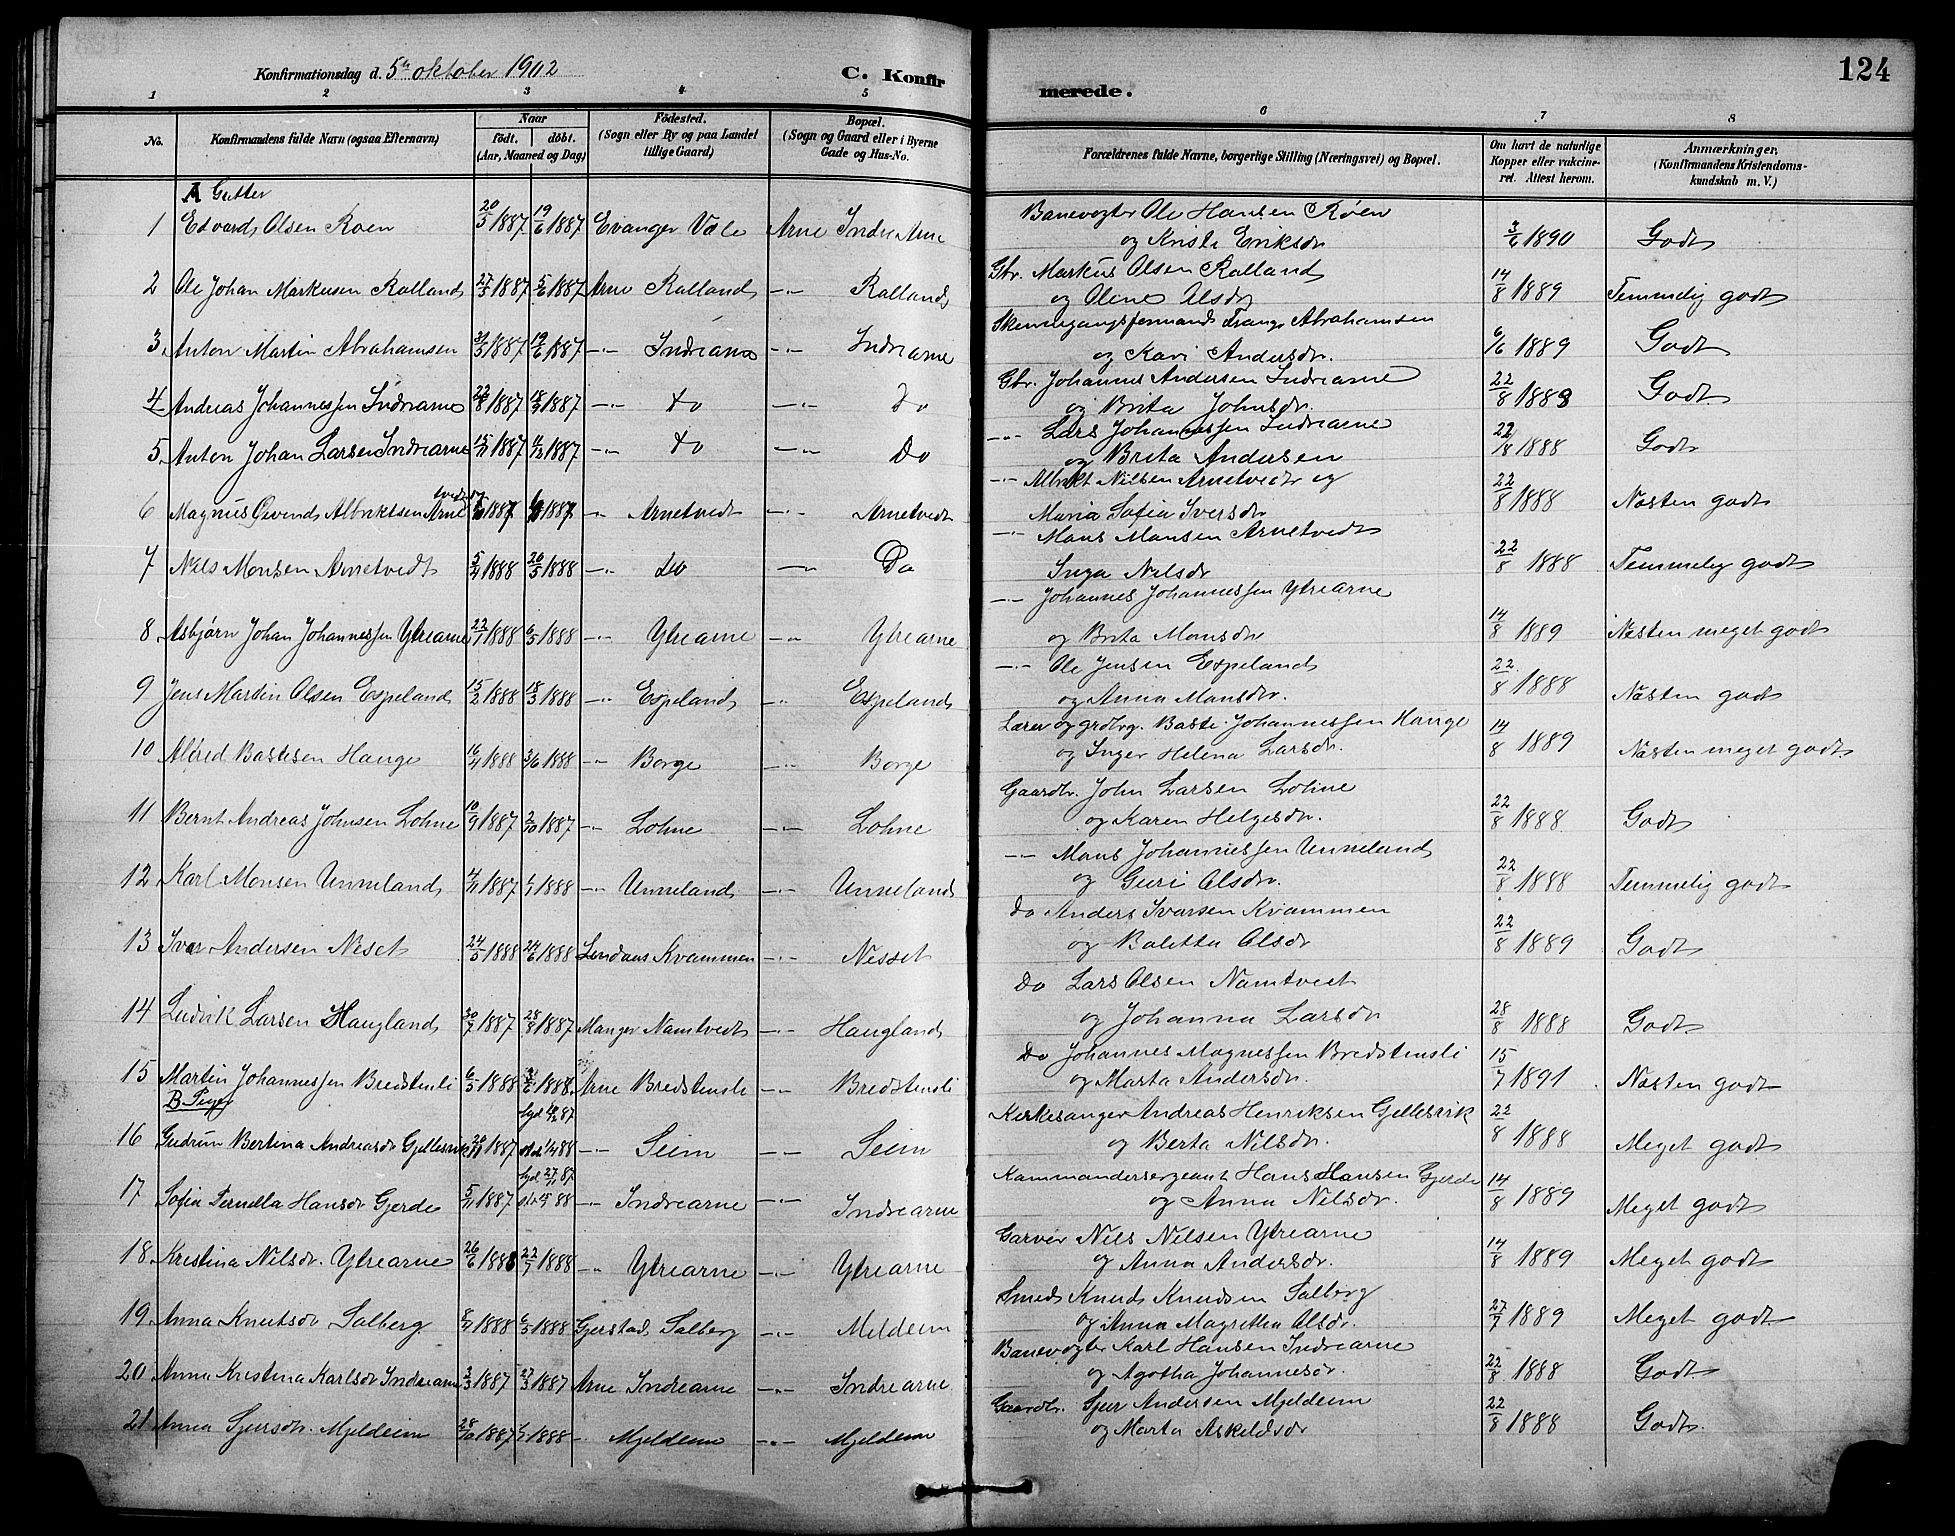 Konfirmationsdag d. 5te oktober 1902
C. Konfirmerede.
124
1 2 3 4 5 6 7 8
No. Konfirmandens fulde Navn (ogsaa Efternavn) Naar födt. döbt. (Aar, Maaned og Dag) Födested. (Sogn eller By og paa Landet tillige Gaard) Bopæl. (Sogn og Gaard eller i Byerne Gade og Hus-No. Forældrenes fulde Navne, borgerlige Stilling (Næringsvei) og Bopæl. Om havt de naturlige Kopper eller vakcineret. Attest herom. Anmærkninger, (Konfirmandens Kristendomskundskab m. V.)
A Gutter
1 Edvard Olsen Röen 20/5 1887 19/6 1887 Evanger Væle Arne Indre Arne Banevogter Ole Hansen Röen
og Kristi Eriksdr 3/6 1890 Godt
2 Ole Johan Markusen Kalland 27/3 1887 5/6 1887 Arne Kalland -"- Kalland Gbr. Markus Olsen Kalland
og Olene Olsdr 14/8 1889 Temmelig godt
3. Anton Martin Abrahamsen 1887 19/6 1887 -"- Indrearne -"- Indrearne Skinnegangsformand Abrahamsen
og Kari Andersdr. 6/6 1889 Godt
4 Andreas Johannessen Indrearne 22/8 1887 18/9 1887 -"- do -"- Do Gbr. Johannes Andersen Indrearne
og Brita Johnsdr. 22/8 1888 Godt
5. Anton Johan Larsen Indrearne 1887 1887 -"- do -"- Do -"- Lars Johannessen Indrearne
og Brita Andersen 22/8 1888 Godt
6 Magnus Öivend Albriktsen Arnetvedt 1887 1887 -"- Arnetvedt -"- Arnetvedt -"- Albrikt Nilsen Arnetvedt og
Maria Sofia Iversdr 22/8 1888 Næsten godt
7 Nils Monsen Arnetvedt 5/4 1888 20/5 1888 -"- Do -"- Do -"- Mons Monsen Arnetvedt
Inga Nilsdr 22/8 1888 Temmelig godt
8 Asbjørn Johan Johannessen Ytrearne 22/1 1888 6/5 1888 -"- Ytrearne -"- Ytrearne -"- Johannes Johannessen Ytrearne
og Brita Monsdr 14/8 1889 Næsten meget godt
9 Jens Martin Olsen Espeland 15/2 1888 18/3 1888 -"- Espeland -"- Espeland -"- Ole Jensen Espeland
og Anna Monsdr. 22/8 1888 Næsten godt
10 Alfred Bastesen Hauge 16/4 1888 3/6 1888 -"- Borge -"- Borge Lærer og grdbrg. Baste Johannessen Hauge
og Inger Helena Larsdr. 14/8 1889 Næsten meget godt
11 Bernt Andreas Johnsen Lohne 10/9 1887 2/10 1887 -"- Lohne -"- Lohne Gaardbr. John Larsen Lohne
og Karen Helgesdr. 22/8 1888 Godt
12 Karl Monsen Unneland 1887 1/1 1888 -"- Unneland -"- Unneland -"- Mons Johannessen Unneland
og Guri Olsdr. 22/8 1888 Temmelig godt
13 Ivar Andersen Neset 24/5 1888 24/6 1888 Lindaas Kvammen -"- Nesset Do Anders Ivarsen Kvammen
og Boletta Olsdr 22/8 1889 Godt
14 Ludvik Larsen Haugland 30/7 1887 28/8 1887 Manger Namtvedt -"- Haugland Do Lars Olsen Namtvedt
og Johanna Larsdr 28/8 1888 Godt
15 Martin Johannessen Bredstensli 6/5 1888 3/6 1888 Arne Bredstensli -"- Bredstensli Do Johannes Magnessen Bredstensli
og Marta Andersdr. 15/7 1891 Næsten godt
B. Piger
16 Gudrun Bertina Andreasdr Gjellesvik 1887 -"- Seim -"- Seim Kirkesanger Andreas Henriksen Gjellesvik
og Berta Nilsdr. 22/8 1888 Meget godt
17 Sofia Pernella Hansdr Gjerde 5/11 1887 hjd 27/11 87 88 -"- Indrearne -"- Indrearne Kommandersergeant Hans Hansen Gjerde
og Anna Nilsdr. 14/8 1889 Meget godt
18. Kristina Nilsdr. Ytrearne 26/6 1888 22/7 1888 -"- Ytrearne -"- Ytrearne Garver Nils Nilsen Ytrearne
og Anna Andersdr. 14/8 1889 Meget godt
19 Anna Knutsdr Salberg 1888 6/5 1888 Gjerstad Salberg -"- Meldeim Smed Knud Knudsen Salberg
og Anna Magretha Olsdr. 27/7 1889 Meget godt
20 Anna Kristina Karlsdr Indrearne 2/3 1887 27/3 1887 Arne Indrearne -"- Indrearne Banevogter Karl Hansen Indrearne
og Agotha Johannesdr 22/8 1888 Godt
21 Anna Sjursdr. Mjeldeim 28/10 1887 1/1 1888 -"- Mjeldeim -"- Mjeldeim Gaardbr. Sjur Andersen Mjeldeim
og Marta Askeldsdr 22/8 1888 Godt